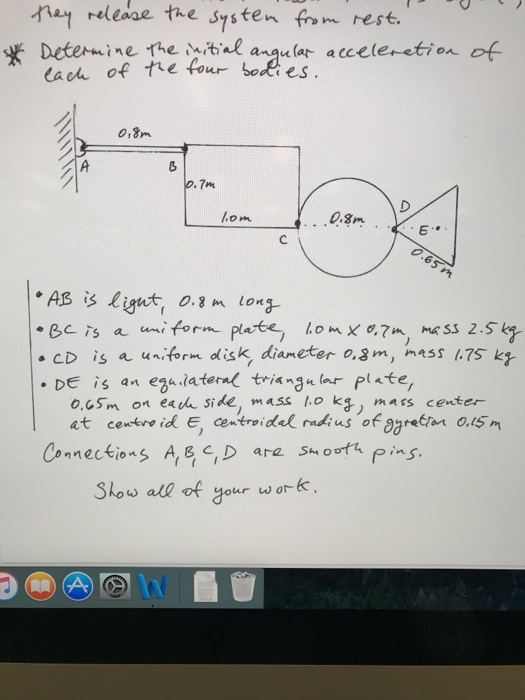 they release the system from rest.
* Determine the initial angular acceleration of
each of the four bodies.
0.8m
A
B
0.7m
1.0m
C
0.8m
D
E
0.65m
• AB is light, 0.8 m long
• BC is a uniform plate, 1.0m x 0.7m, mass 2.5 kg
• CD is a uniform disk, diameter 0.8m, mass 1.75 kg
• DE is an equilateral triangular plate,
0.65m on each side, mass 1.0 kg, mass center
at centroid E, centroidal radius of gyration 0.15m
Connections A, B, C, D are smooth pins.
Show all of your work.
W